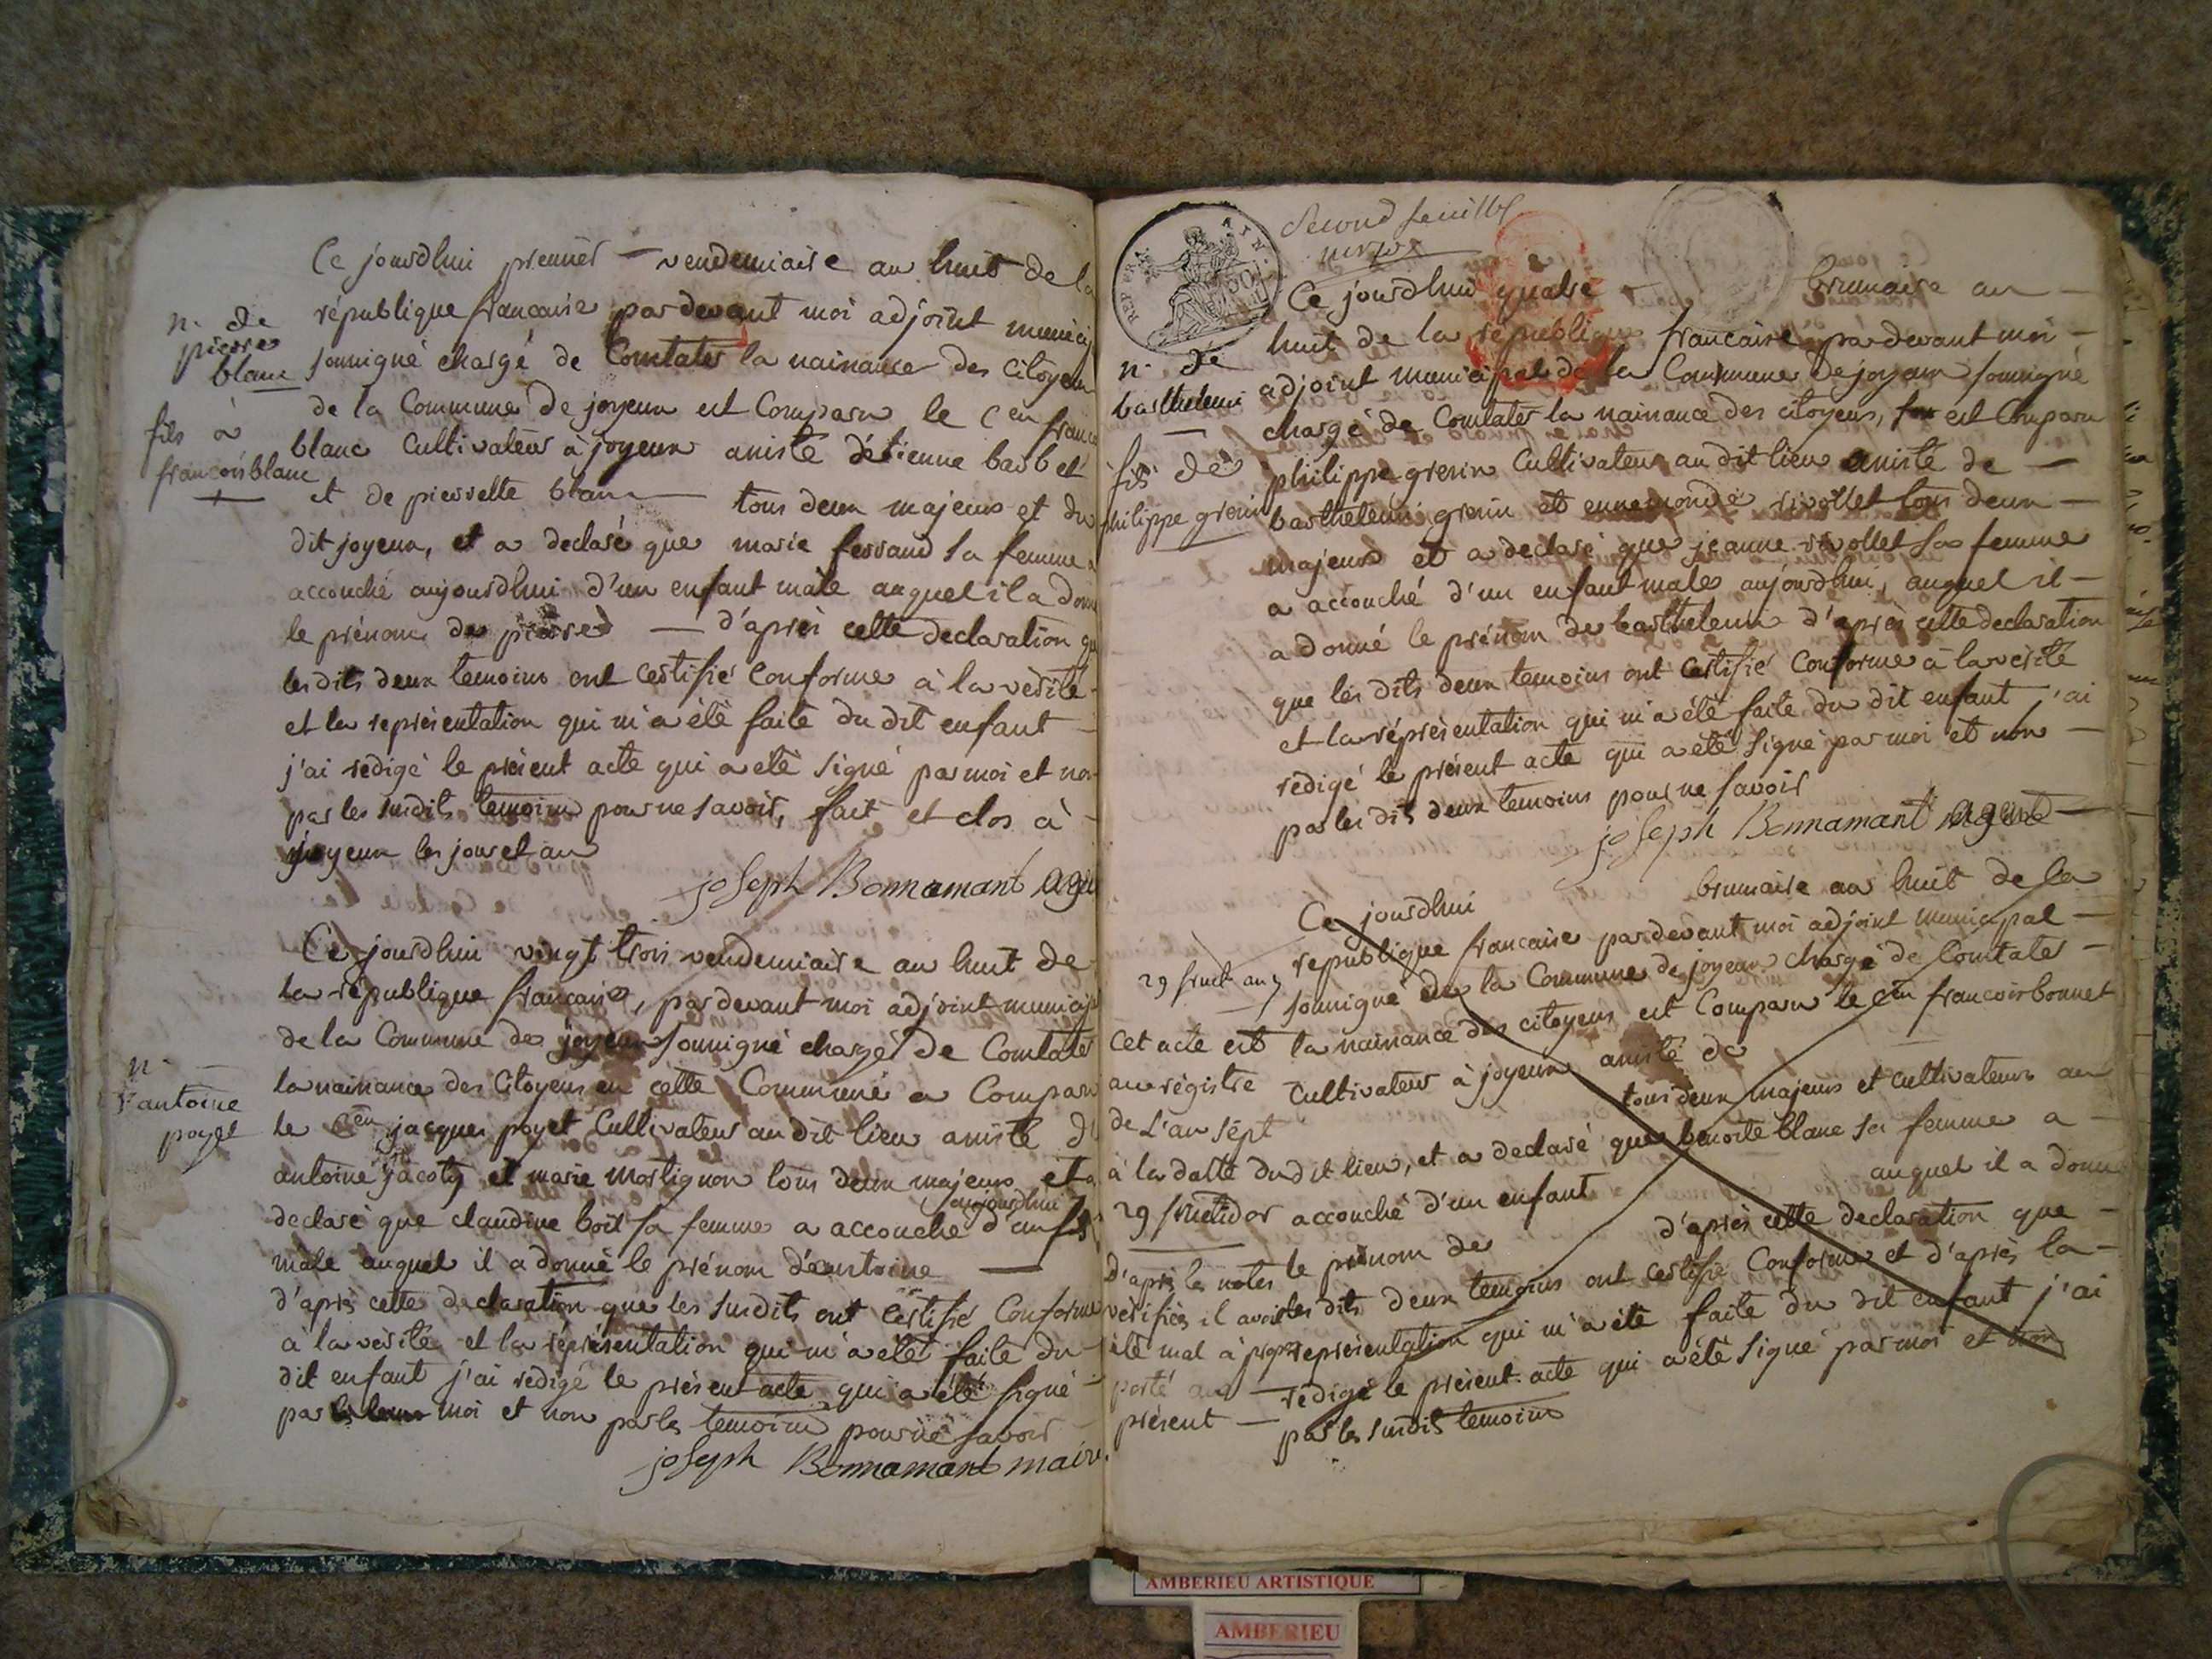 Ce jourdhui premier — vendemiaire an huit de la
république francaise pardevant moi adjoint municip
n. de
pierre
blanc
soussigné chargé de Constater la naissance des citoyens
de la Commune de joyeux est Comparu le Cen franc
fils à
francois blanc
blanc Cultivateur à joyeux assisté d'étienne barbet
et de pierrette blanc — tous deux majeurs et du
dit joyeux, et a declaré que marie ferrand sa femme a
accouché aujourdhui d'un enfant mâle auquel il a donn
le prénom de pierre — d'après cette declaration qu
les dits deux temoins ont certifié conforme à la vérité
et la représentation qui m'a été faite du dit enfant —
j'ai rédigé le présent acte qui a été signé par moi et non
par les susdits temoins pour ne savoir, fait et clos à —
joyeux les jour et an
joseph Bonnamant age
Ce jourdhui vingt trois vendemiaire an huit de
la république francaise, pardevant moi adjoint municip
de la Commune de joyeux soussigné chargé de Constater
n. —
antoine
poyet
la naissance des Citoyens en cette Commune a Comparu
le Cen jacques poyet Cultivateur au dit lieu assisté d'
antoine jacoty et marie mortignon tous deux majeurs et a
aujourdhui
declaré que claudine boit sa femme a accouché d'un fils
mâle auquel il a donné le prénom d'antoine —
d'après cette declaration que les susdits ont certifié Conforme
à la vérité et la représentation qui m'a été faite du
dit enfant j'ai rédigé le présent acte qui a été signé —
par moi et non par les temoins pour ne savoir
joseph Bonnamant maire
Second feuillet
REP. FRA. AIN.
Ce jourdhui quatre — brumaire an —
huit de la république francaise pardevant moi —
n. de
barthelemi
—
adjoint municipal de la Commune de joyeux soussigné
chargé de Constater la naissance des citoyens, est Comparu
fils de
philippe grenin
philippe grenin Cultivateur au dit lieu assisté de —
barthelemi grenin et ennemonde rivollet tous deux —
majeurs et a declaré que jeanne rivollet sa femme
a accouché d'un enfant male aujourdhui, auquel il —
a donné le prénom de barthelemi d'après cette declaration
que les dits deux temoins ont certifié Conforme à la vérité
et la représentation qui m'a été faite du dit enfant j'ai
rédigé le présent acte qui a été signé par moi et non —
par les dits deux temoins pour ne savoir
joseph Bonnamant agent
Ce jourdhui brumaire an huit de la
republique francaise pardevant moi adjoint municipal —
soussigné de la Commune de joyeux chargé de Constater —
la naissance des citoyens est Comparu le Cen francois bonnet
Cultivateur à joyeux assisté de
tous deux majeurs et cultivateurs au
dit lieu, et a declaré que benoite blanc sa femme a —
accouché d'un enfant auquel il a donné
le prénom de d'après cette declaration que —
les dits deux temoins ont certifié Conforme et d'après la —
représentation qui m'a été faite du dit enfant j'ai
rédigé le présent acte qui a été signé par moi et non
par les susdits temoins
29 fruct. an 7
Cet acte est
au régistre
de L'an sept
à la datte du
29 fructidor
d'après les notes
vérifiées il avoit
été mal à propos
porté au —
présent —
AMBERIEU ARTISTIQUE
AMBERIEU